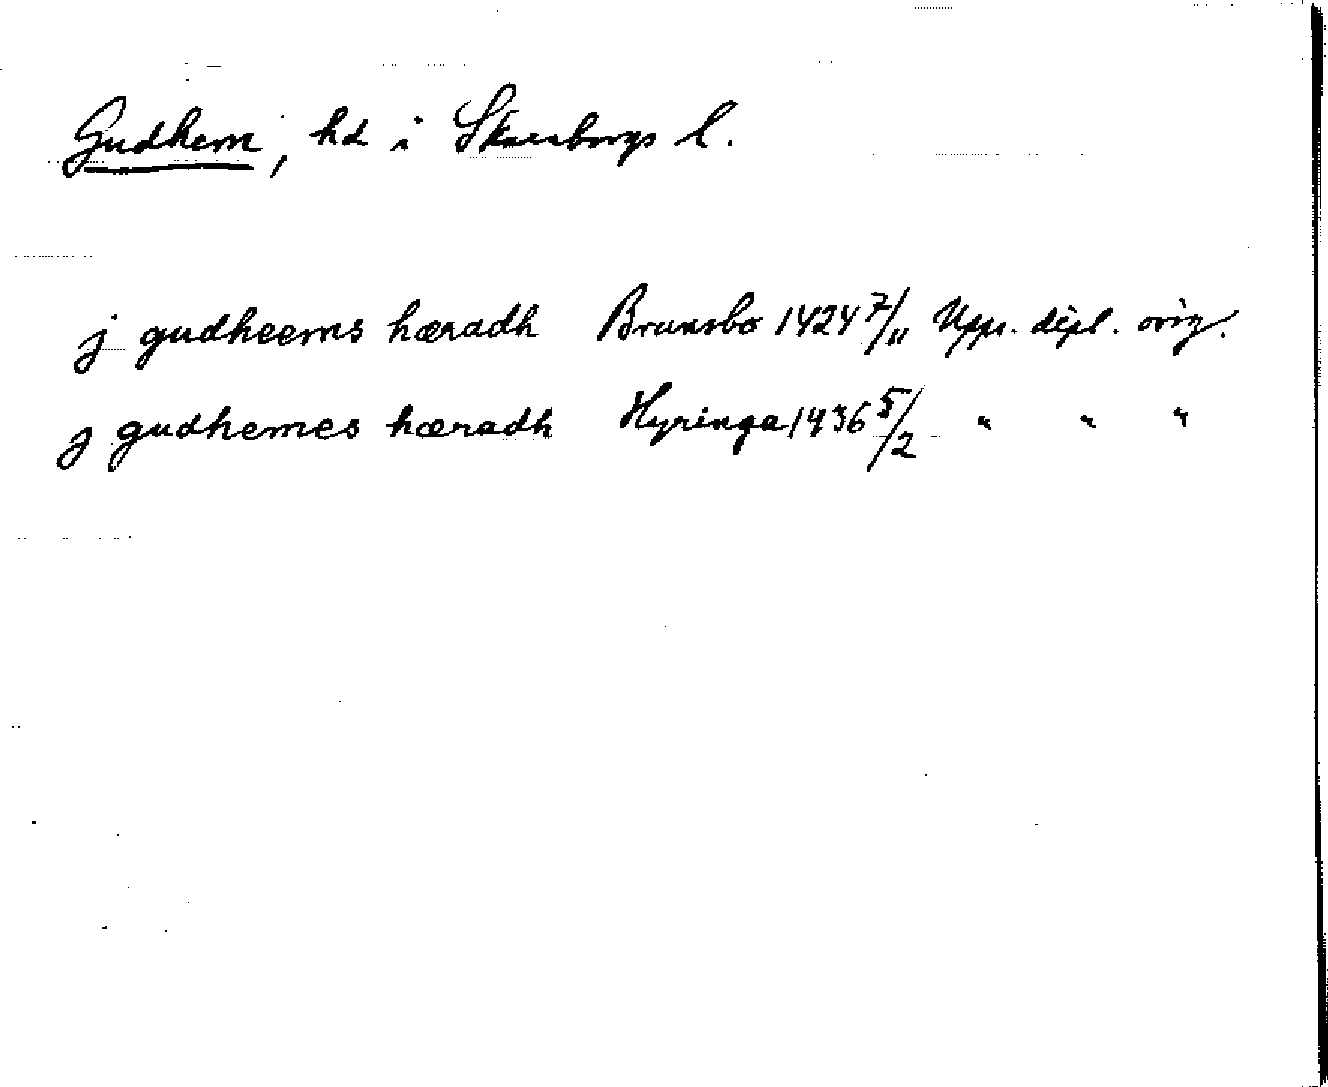 Gudhem, hd i Skaraborgs l.
j gudheems hæradh Brunsbo 1424 7/11 Upps. dipl. orig.
j gudhemes hæradh Hyringa 1436 5/2 " " "